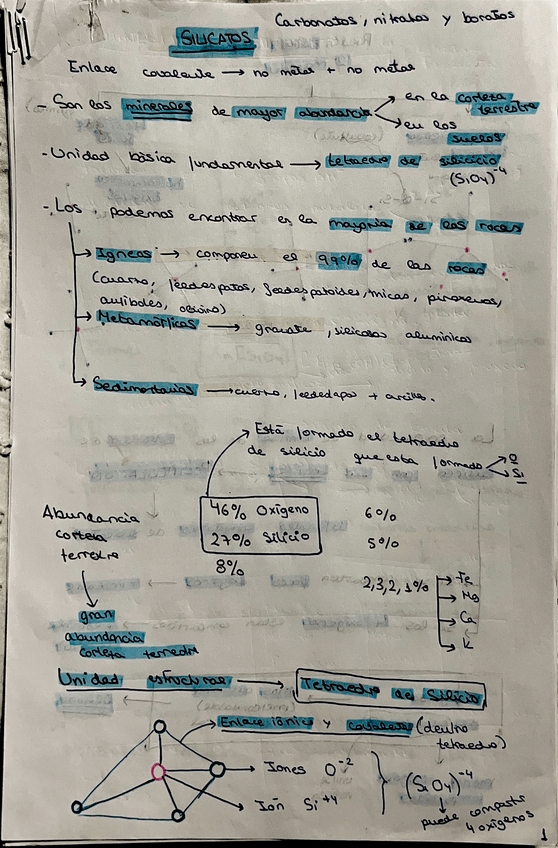 Carbonatos, nitratos y boratos
SILICATOS
Enlace covalente → no metal + no metal
- Son los minerales de mayor abundancia → en la corteza terrestre
→ en los suelos
- Unidad básica fundamental → tetraedro de silicio
(SiO4)-4
- Los podemos encontrar en la mayoría de las rocas
→ Ígneas → componen el 99% de las rocas
(cuarzo, feldespatos, feldespatoides, micas, piroxenos,
anfiboles, olivino)
→ Metamórficas → granate, silicatos alumínicos
→ Sedimentarias → cuarzo, + arcillas.
Está formado el tetraedro
de silicio que esta formado → O
→ Si
Abundancia
corteza
terrestre
46% Oxígeno
27% Silicio
8%
6%
5%
2,3,2,1%
→ Fe
→ Mg
→ Ca
→ K
gran
abundancia
corteza terrestre
Unidad estructural → Tetraedro de Silicio
Enlace iónico y covalente (dentro
tetraedro)
→ Iones O-2
→ Ión Si+4
(SiO4)-4
puede compartir
4 oxígenos
1